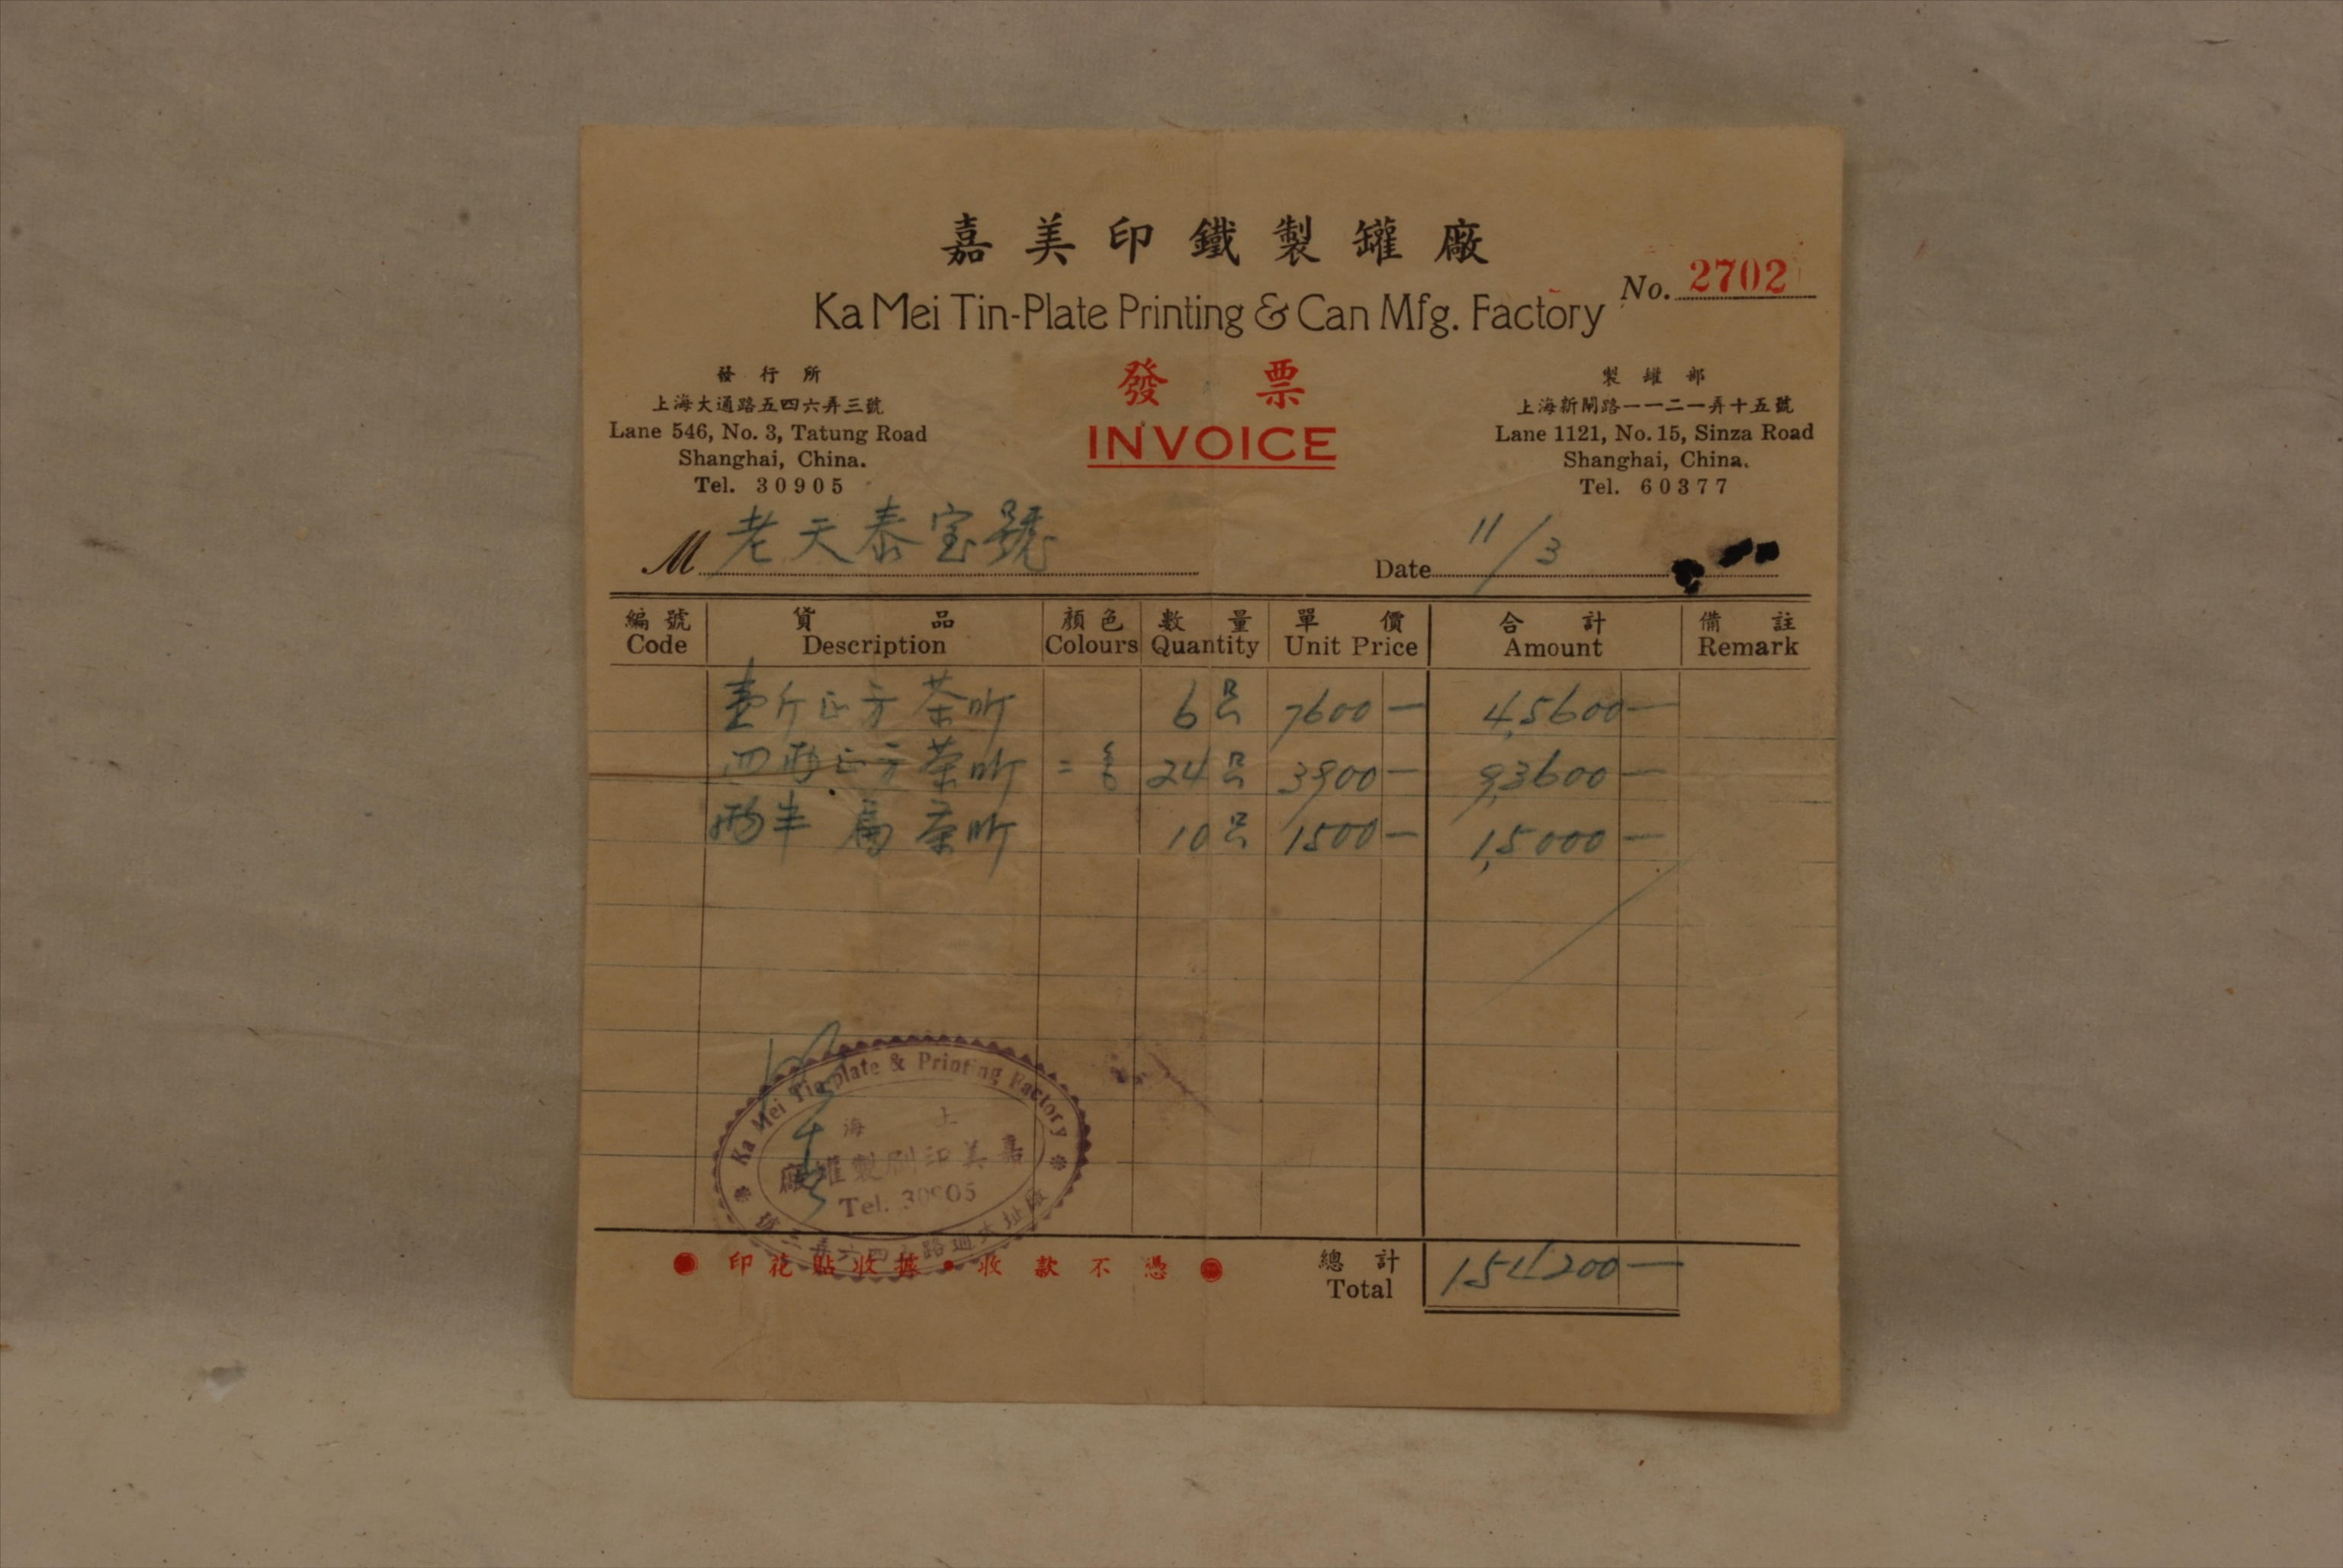 嘉美印鐵製罐廠
No. 2702
Ka Mei Tin-Plate Printing & Can Mfg. Factory
發行所
上海大通路五四六弄三號
Lane 546, No. 3, Tatung Road
Shanghai, China.
Tel. 30905
發票
INVOICE
製罐部
上海新閘路一一二一弄十五號
Lane 1121, No. 15, Sinza Road
Shanghai, China.
Tel. 60377
M 老天泰宝號
Date 11/3
編號 貨品 顏色 數量 單價 合計 備註
Code Description Colours Quantity Unit Price Amount Remark
壹斤正方茶听 6只 7600— 4,5600—
四両正方茶听 =色 24只 3900— 9,3600—
両半扁茶听 10只 1500— 1,5000—
Ka Mei Tin-plate & Printing Factory
上海
嘉美印刷製罐廠
Tel. 30905
印花貼收據•收款不憑
總計
Total 154200—